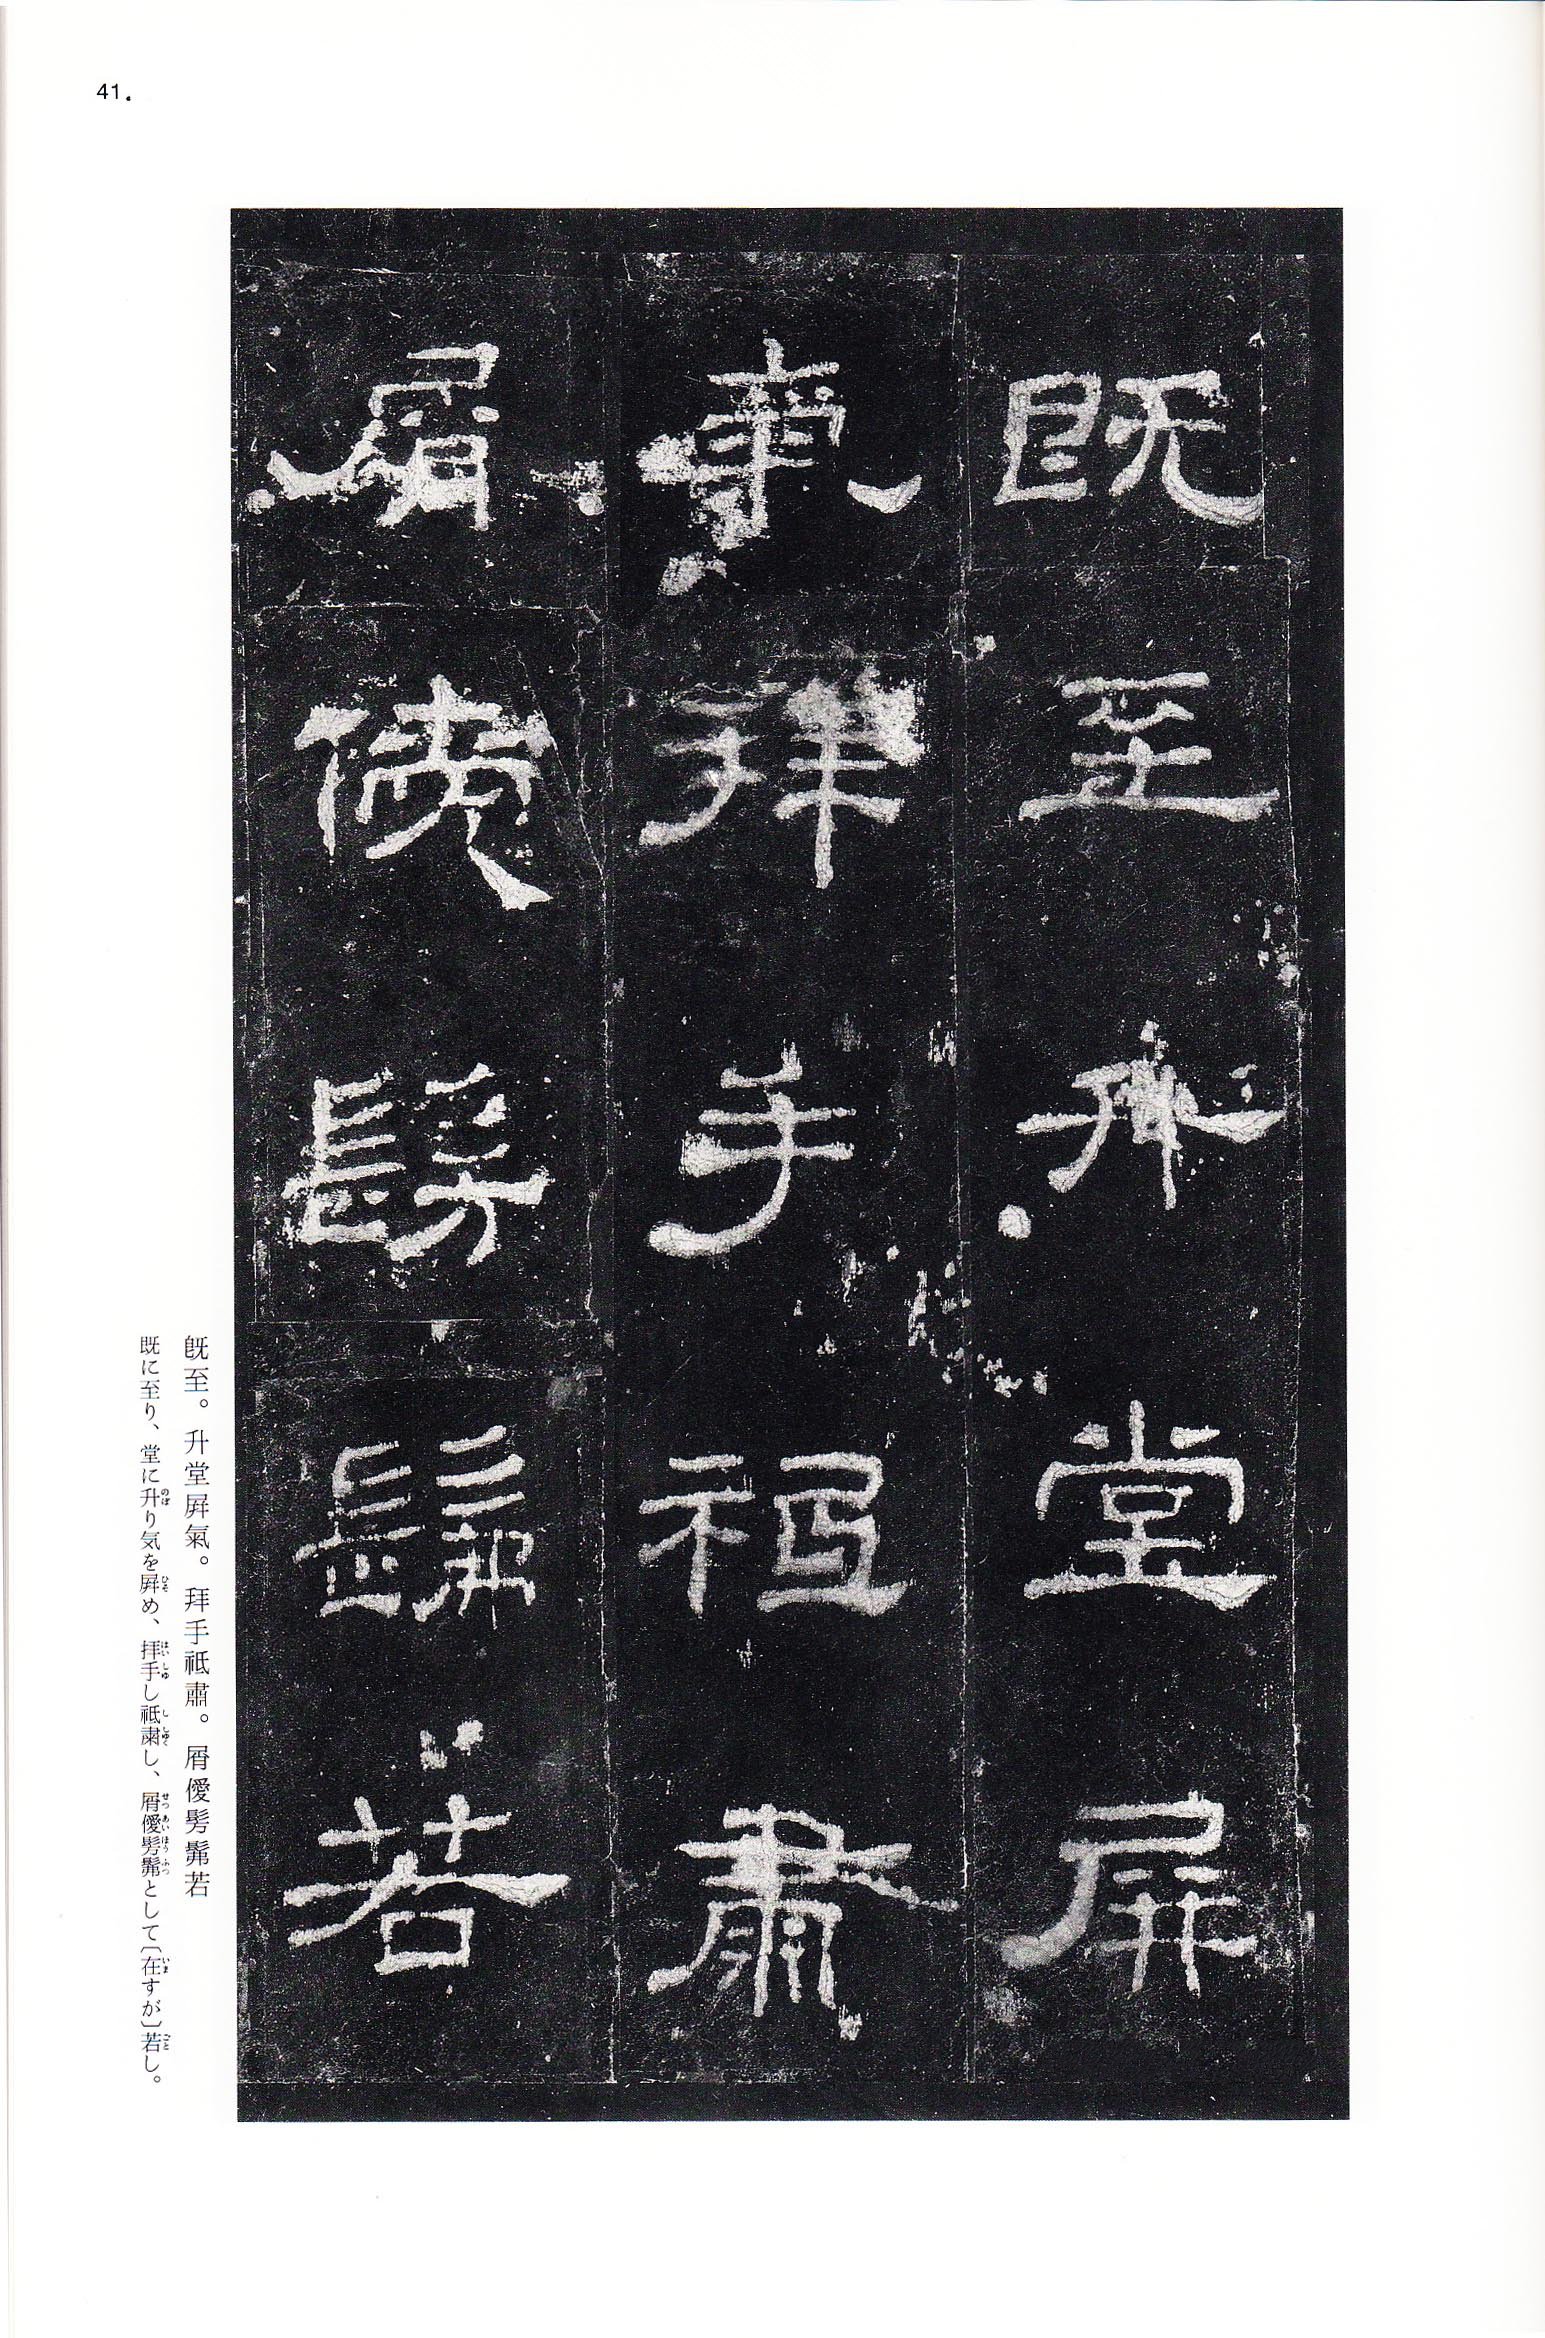 41.
既至升堂屏
氣拜手祗肅
屑僾髣髴若
既至。升堂屏氣。拜手祗肅。屑僾髣髴若
既に至り、堂に升り気を屏め、拝手し祗粛し、屑僾髣髴として〔在すが〕若し。